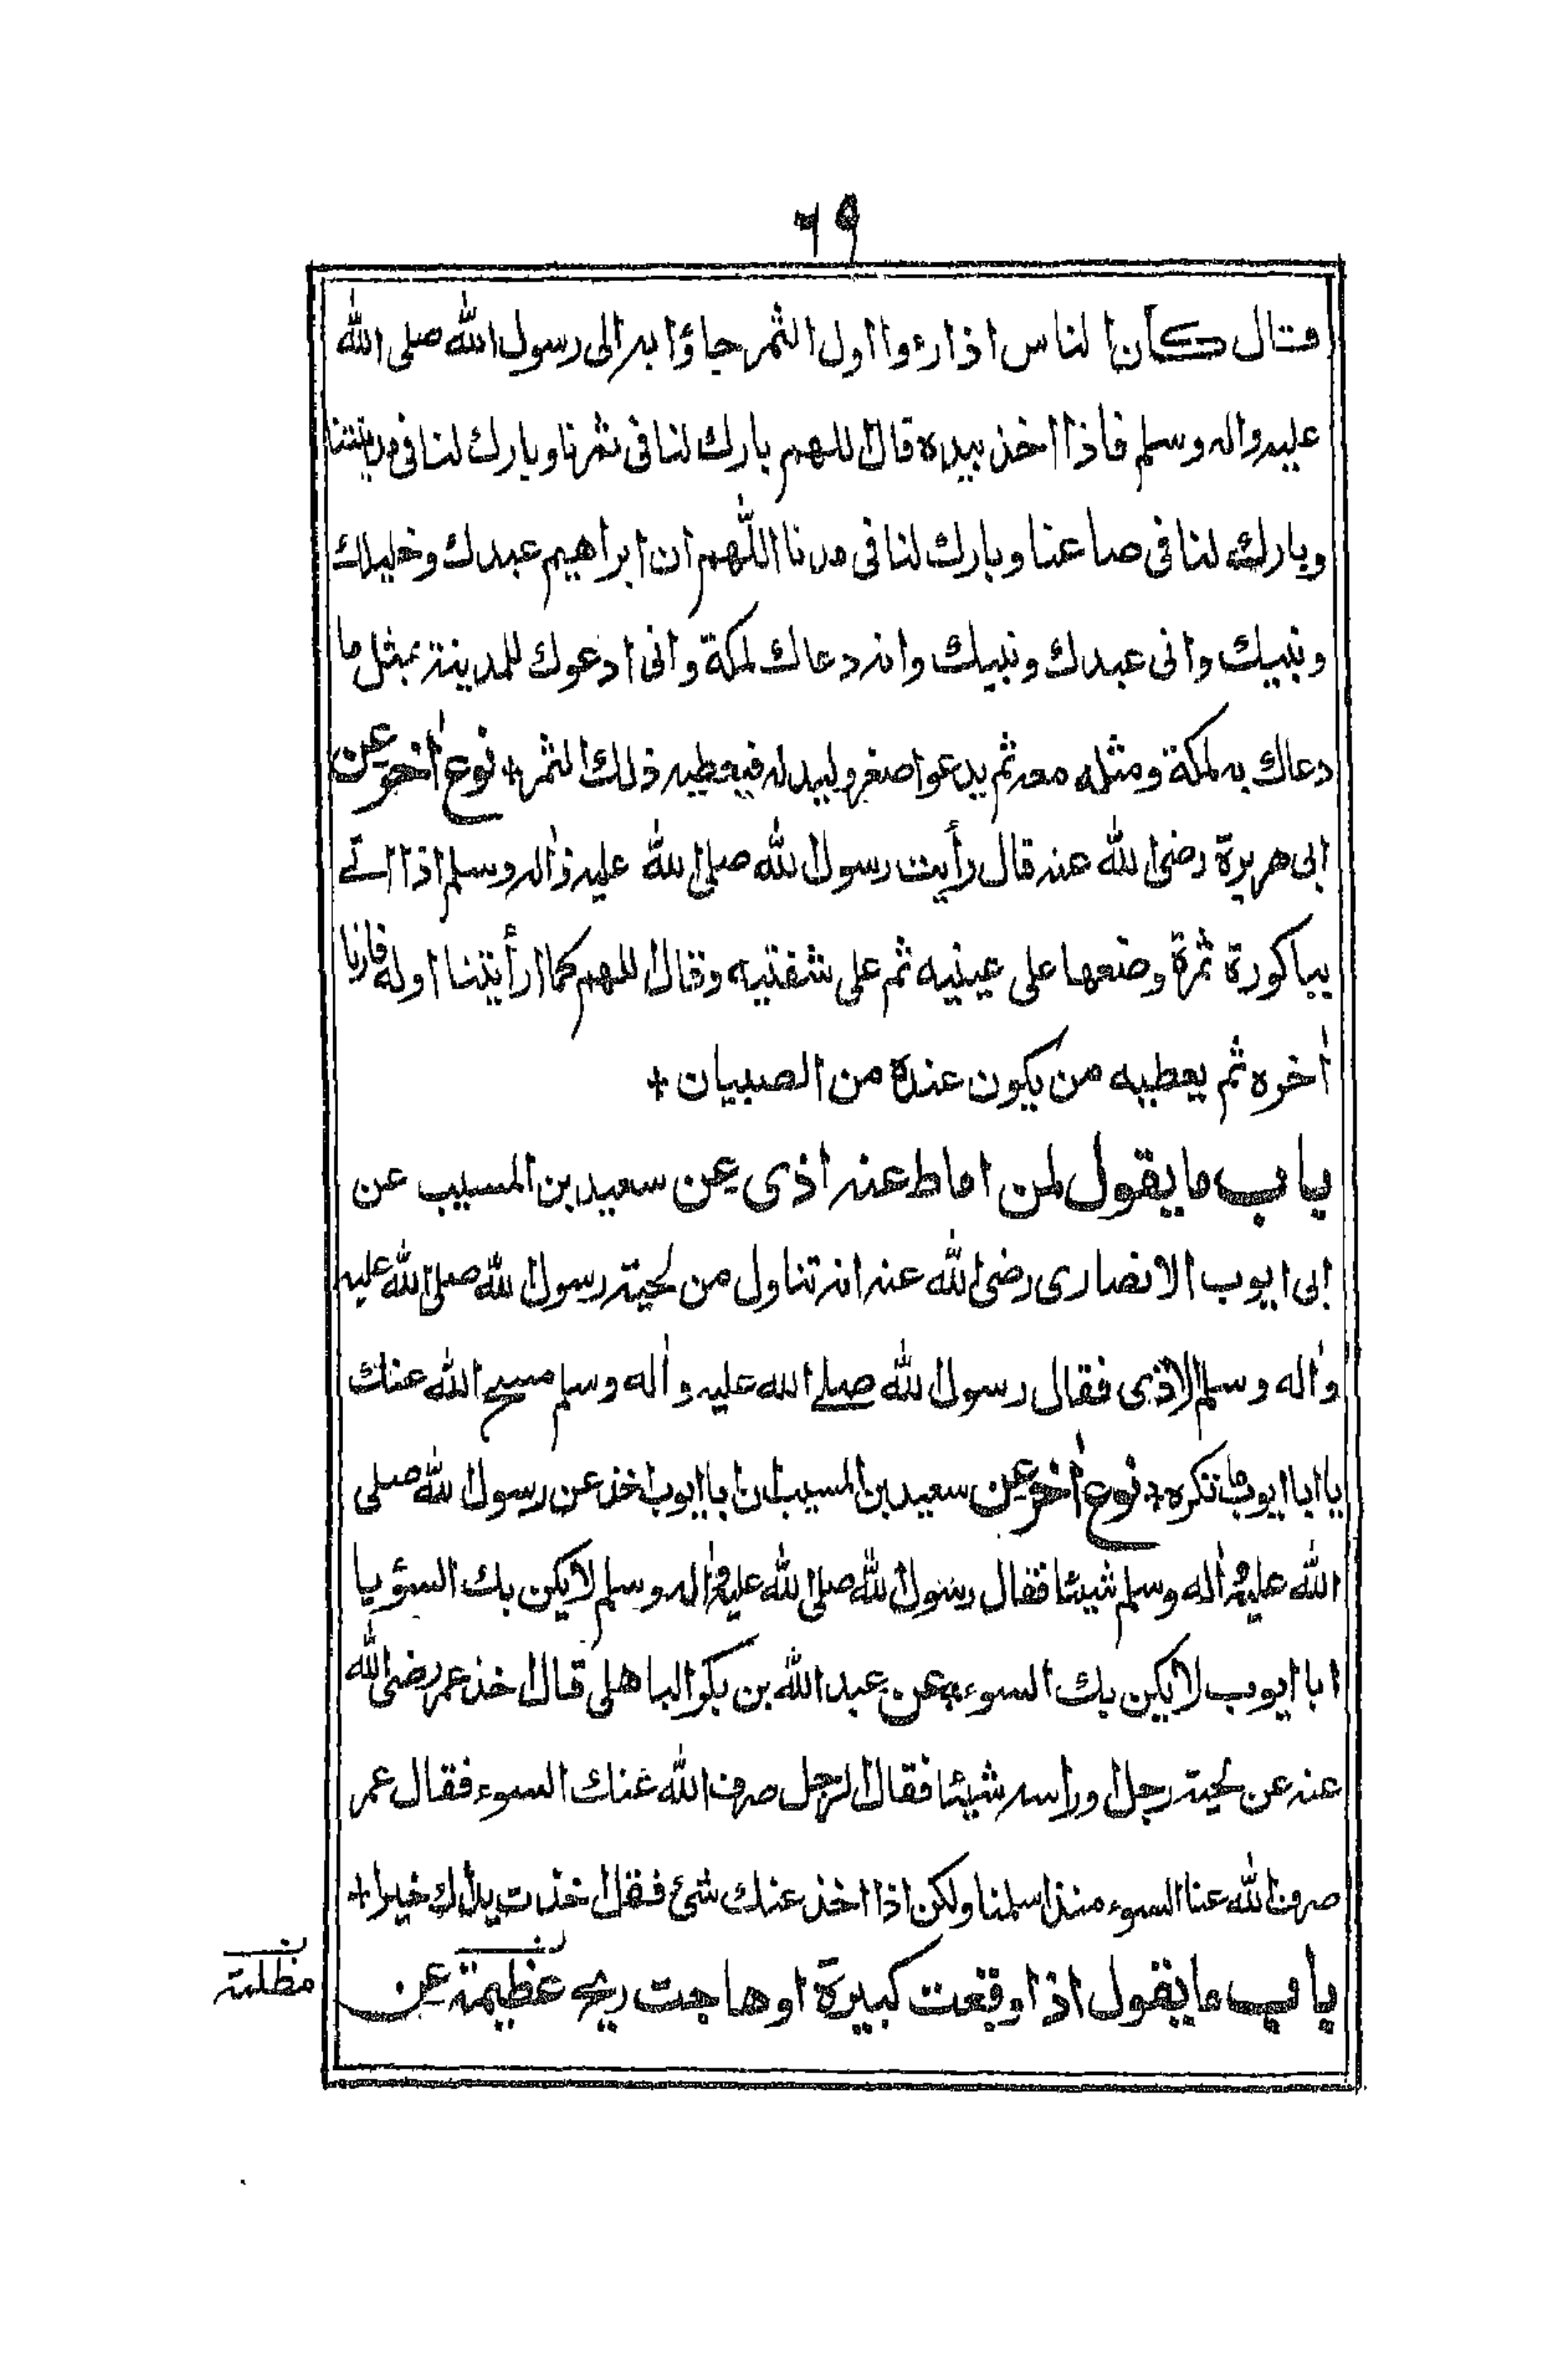 ٦٩
قال كان الناس اذا رءوا اول الثمر جاؤا به الى رسول الله صلى الله
عليه واله وسلم فاذا اخذ بيده قال اللهم بارك لنا فى ثمرنا وبارك لنا فى مدينتنا
وبارك لنا فى صاعنا وبارك لنا فى مدنا اللهم ان ابراهيم عبدك وخليلك
ونبيك وانى عبدك ونبيك وانه دعاك لمكة وانى ادعوك للمدينة بمثل ما
دعاك به لمكة ومثله معه ثم يدعو اصغر وليد له فيعطيه ذلك الثمر + نوع اٰخر عن
ابى هريرة رضى الله عنه قال رأيت رسول الله صلى الله عليه واٰله وسلم اذا اتے
بباكورة ثمرة وضعها على عينيه ثم على شفتيه وقال اللهم كما ارأيتنا اوله فارنا
اٰخره ثم يعطيه من يكون عنده من الصبيان +
باب ما يقول لمن اماط عنه اذى عن سعيد بن المسيب عن
ابى ايوب الانصارى رضى الله عنه انه تناول من لحية رسول الله صلى الله عليه
واٰله وسلم الاذى فقال رسول الله صلے الله عليه واٰله وسلم مسح الله عنك
يا ابا ايوب ما تكره + نوع اٰخر عن سعيد بن المسيب ان ابا ايوب اخذ عن رسول الله صلى
الله عليه واٰله وسلم شيئا فقال رسول الله صلى الله عليه واٰله وسلم لا يكن بك السؤ يا
ابا ايوب لا يكن بك السوء + عن عبد الله بن بكر الباهلى قال اخذ عمر رضى الله
عنه عن لحية رجل او راسه شيئا فقال الرجل صرف الله عنك السوء فقال عمر
صرف الله عنا السوء منذ اسلمنا ولكن اذا اخذ عنك شئ فقل اخذت يداك خيرا +
باب ما يقول اذا وقعت كبيرة او هاجت ريح عظيمة عن
ن
مظلمة